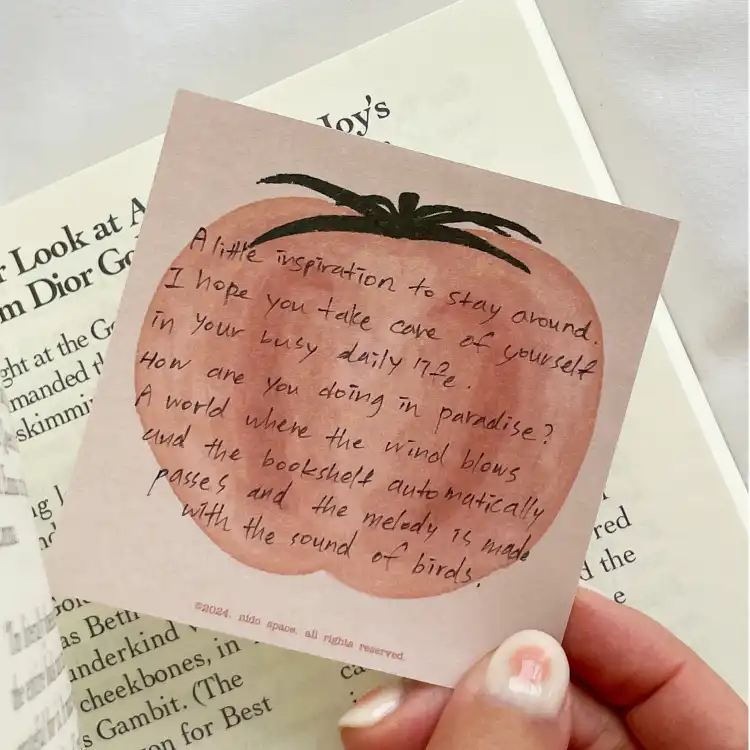 Joy's
r Look at A
m Dior Go
ght at the G
manded t
skimmin
A little inspiration to stay around.
I hope you take care of yourself
in your busy daily life.
How are you doing in paradise?
A world where the wind blows
and the bookshelf automatically
passes and the melody is made
with the sound of birds.
©2024. nido space. all rights reserved.
as Beth
underkind
cheekbones, in
s Gambit. (The
on for Best
red
d the
e
ca